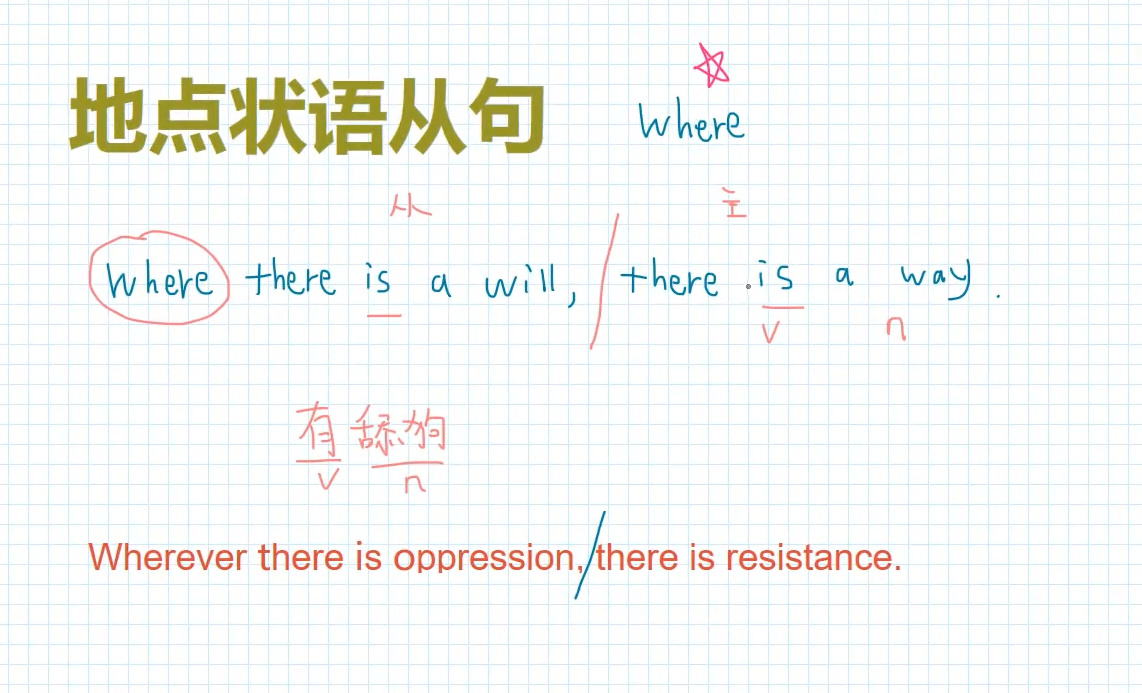 地点状语从句
where
从 主
Where there is a will, / there is a way.
v n
有舔狗
v n
Wherever there is oppression, / there is resistance.